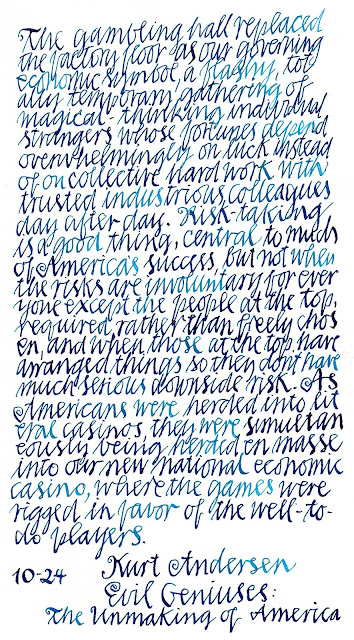 The gambling hall replaced
the factory floor as our governing
economic symbol, a flashy, tot
ally temporary gathering of
magical-thinking individual
strangers whose fortunes depend
overwhelmingly on luck instead
of on collective hard work with
trusted industrious colleagues
day after day. Risk-taking
is a good thing, central to much
of America's success, but not when
the risks are involuntary for ever
yone except the people at the top,
required, rather than freely chos
en, and when those at the top have
arranged things so they don't have
much serious downside risk. As
Americans were herded into lit
eral casinos, they were simultan
eously being herded en masse
into our new national economic
casino, where the games were
rigged in favor of the well-to-
do players.
10-24 Kurt Andersen
Evil Geniuses:
The Unmaking of America